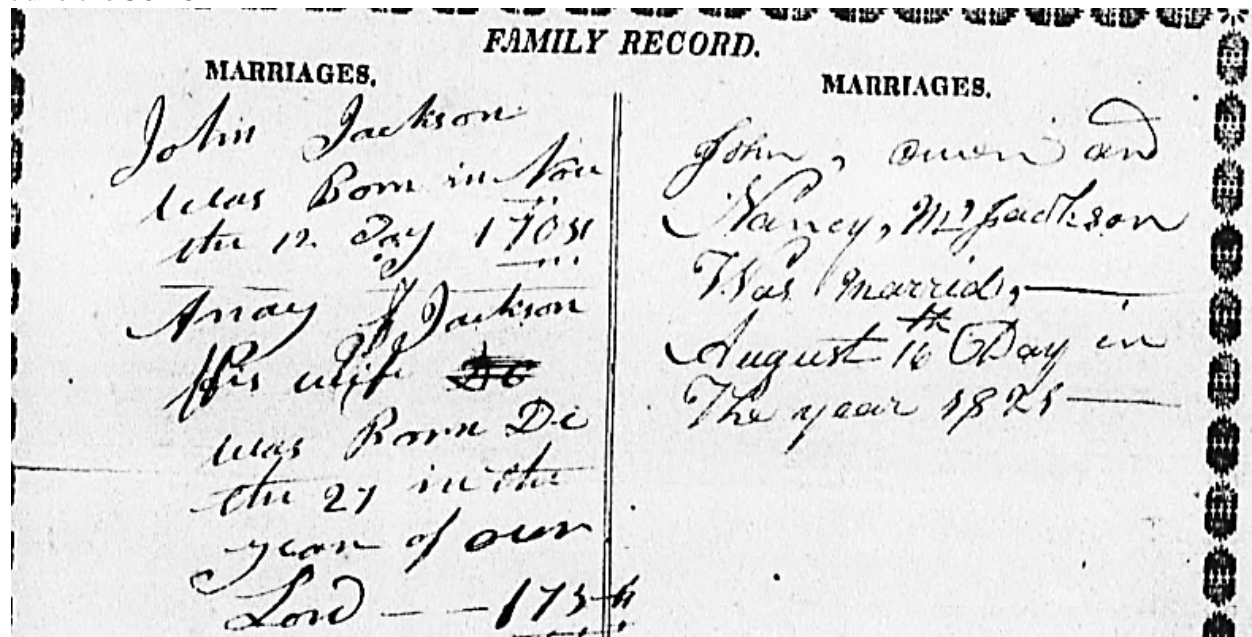 FAMILY RECORD.
MARRIAGES.
John Jackson
was Born in Nov
the 12 Day
Jackson
His wife
was Born De
the 27 in the
year of our
Lord — —
MARRIAGES.
John, Owen and
Nancy, M Jackson
Was Married, —
August 16th Day in
The year 1825 —